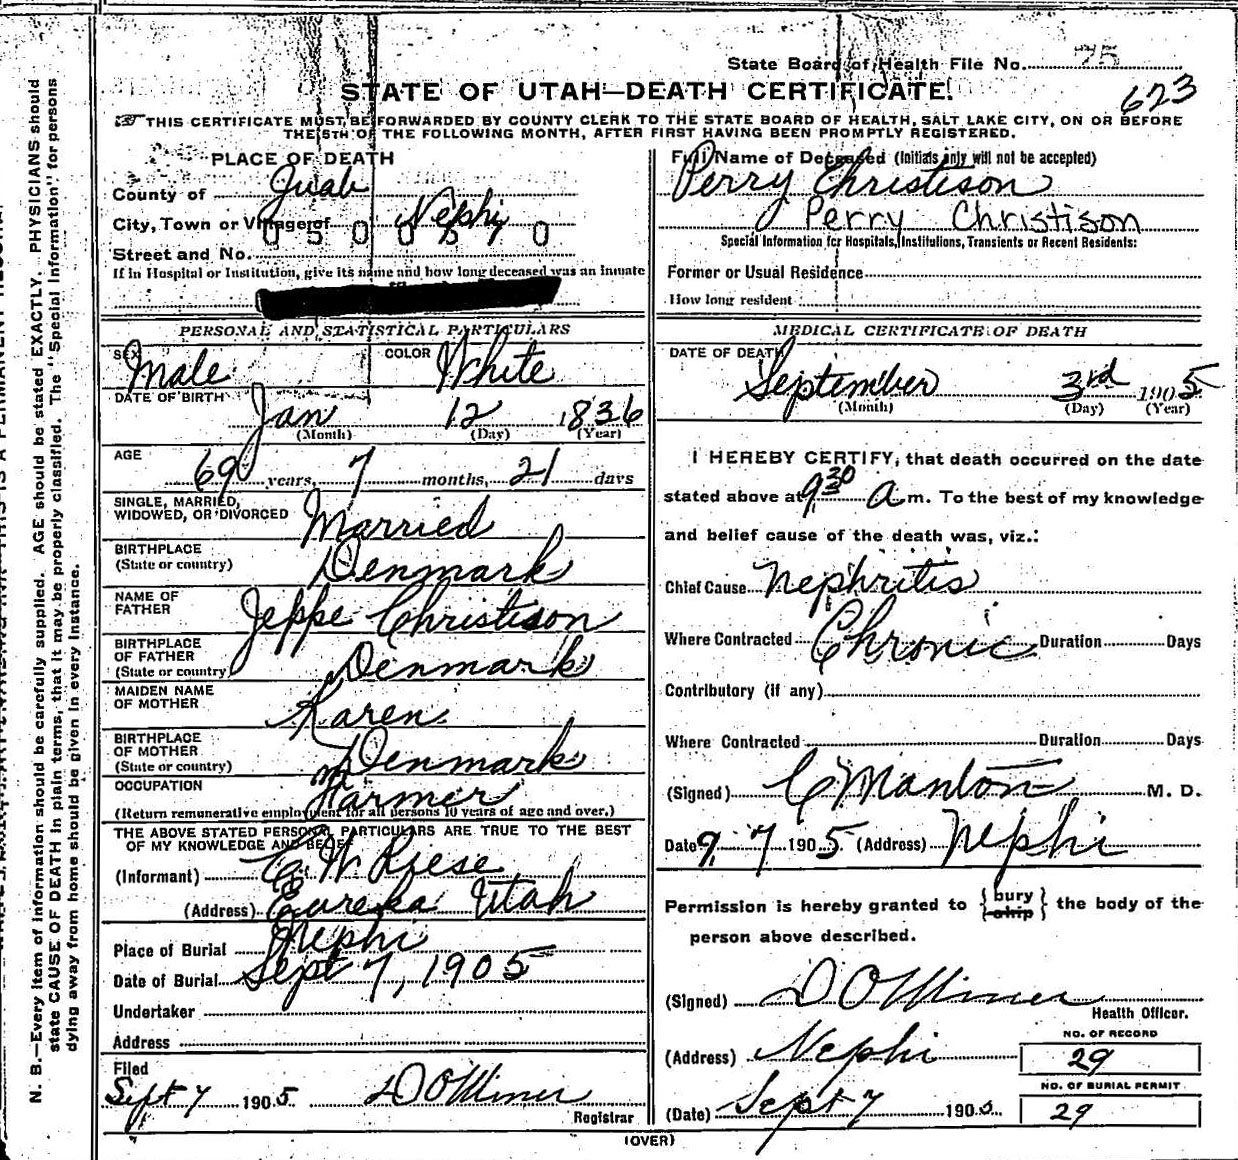 State Board of Health File No. 75
STATE OF UTAH—DEATH CERTIFICATE.
623
THIS CERTIFICATE MUST BE FORWARDED BY COUNTY CLERK TO THE STATE BOARD OF HEALTH, SALT LAKE CITY, ON OR BEFORE
THE 5TH OF THE FOLLOWING MONTH, AFTER FIRST HAVING BEEN PROMPTLY REGISTERED.
PLACE OF DEATH
County of Juab
City, Town or Village of Nephi
0500670
Street and No.
If in Hospital or Institution, give its name and how long deceased was an inmate
PERSONAL AND STATISTICAL PARTICULARS
SEX Male COLOR White
DATE OF BIRTH
Jan 12 1836
(Month) (Day) (Year)
AGE
69 years, 7 months, 21 days
SINGLE, MARRIED,
WIDOWED, OR DIVORCED Married
BIRTHPLACE
(State or country) Denmark
NAME OF
FATHER Jeppe Christison
BIRTHPLACE
OF FATHER
(State or country) Denmark
MAIDEN NAME
OF MOTHER Karen
BIRTHPLACE
OF MOTHER
(State or country) Denmark
OCCUPATION Farmer
(Return remunerative employment for all persons 10 years of age and over.)
THE ABOVE STATED PERSONAL PARTICULARS ARE TRUE TO THE BEST
OF MY KNOWLEDGE AND BELIEF
(Informant) W Riese
(Address) Eureka Utah
Place of Burial Nephi
Date of Burial Sept 7, 1905
Undertaker
Address
Filed
Sept 7 1905 D O Miner
Registrar
Full Name of Deceased (Initials only will not be accepted)
Perry Christison
Perry Christison
Special Information for Hospitals, Institutions, Transients or Recent Residents:
Former or Usual Residence
How long resident
MEDICAL CERTIFICATE OF DEATH
DATE OF DEATH
September 3rd 1905
(Month) (Day) (Year)
I HEREBY CERTIFY, that death occurred on the date
stated above at 9:30 a m. To the best of my knowledge
and belief cause of the death was, viz.:
Chief Cause Nephritis
Where Contracted Chronic Duration Days
Contributory (if any)
Where Contracted Duration Days
(Signed) C Manton M. D.
Date 9, 7 1905 (Address) Nephi
Permission is hereby granted to {bury
ship} the body of the
person above described.
(Signed) D O Miner
Health Officer.
(Address) Nephi
NO. OF RECORD
29
(Date) Sept 7 1905
NO. OF BURIAL PERMIT
29
(OVER)
N. B.—Every item of information should be carefully supplied. AGE should be stated EXACTLY. PHYSICIANS should
state CAUSE OF DEATH in plain terms, that it may be properly classified. The "Special Information" for persons
dying away from home should be given in every instance.